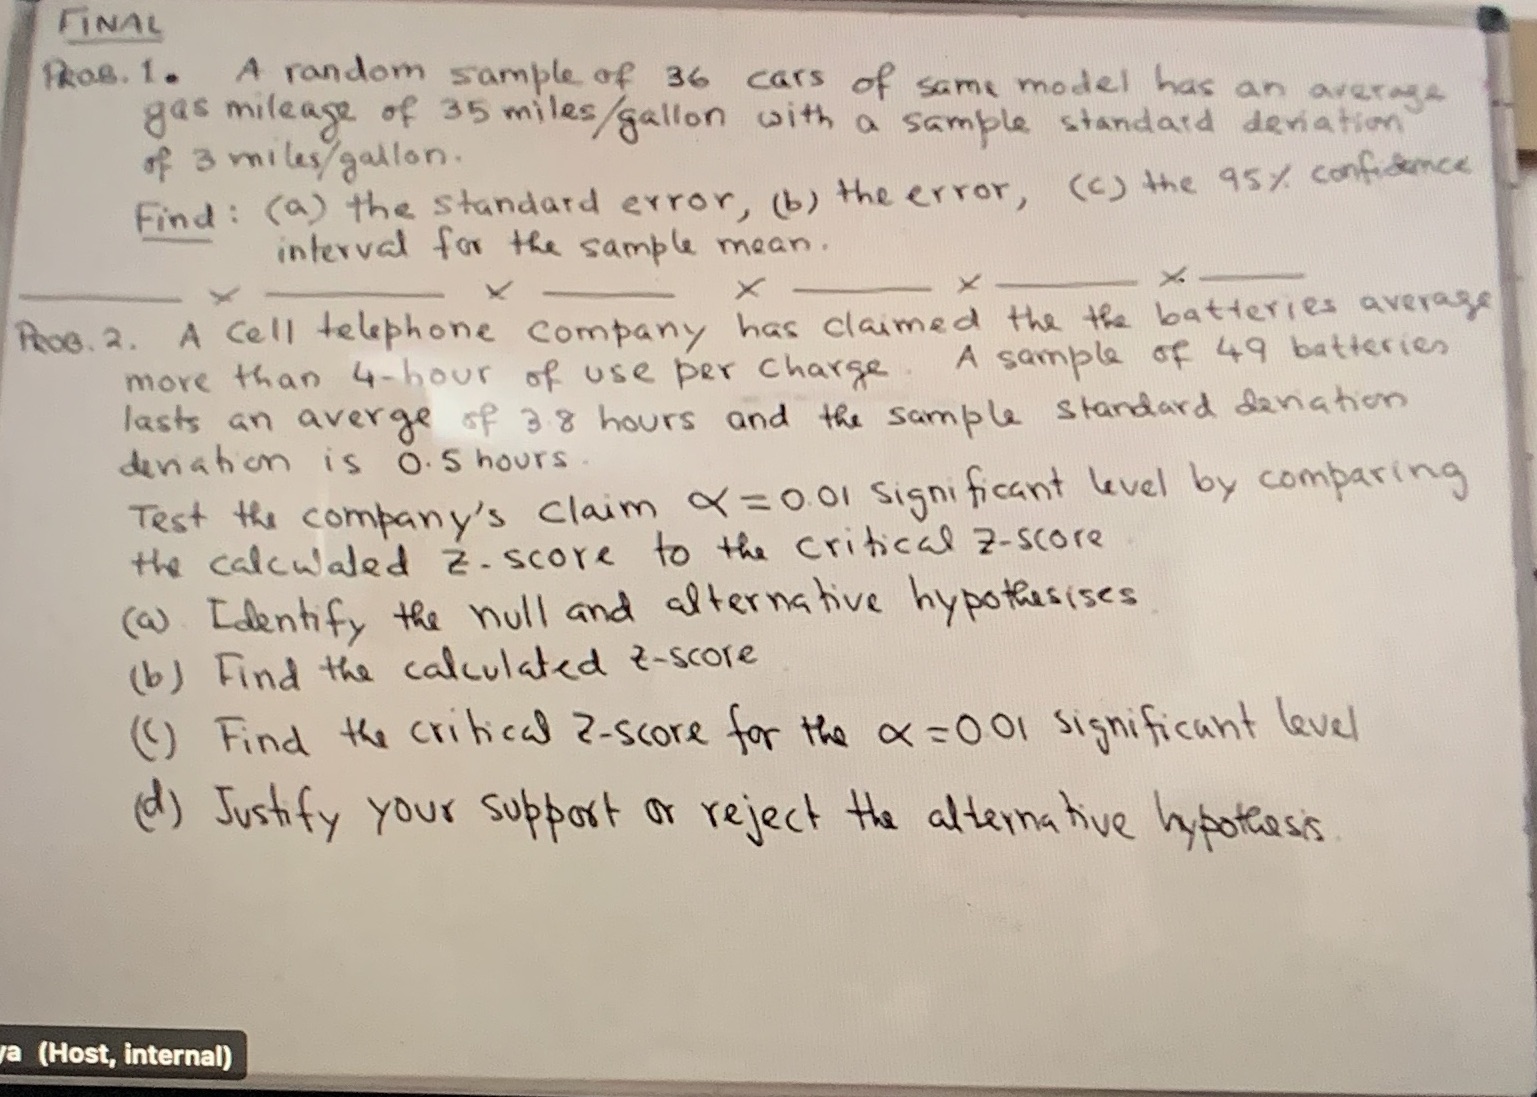 FINAL
PROB. 1. A random sample of 36 cars of same model has an average
gas mileage of 35 miles/gallon with a sample standard deviation
of 3 miles/gallon.
Find: (a) the standard error, (b) the error, (c) the 95% confidence
interval for the sample mean.
PROB. 2. A cell telephone company has claimed the the batteries average
more than 4-hour of use per charge. A sample of 49 batteries
lasts an averge of 3.8 hours and the sample standard deviation
deviation is 0.5 hours.
Test the company's claim α=0.01 significant level by comparing
the calculated z-score to the critical z-score
(a) Identify the null and alternative hypothesises
(b) Find the calculated z-score
(c) Find the critical z-score for the α=0.01 significant level
(d) Justify your support or reject the alternative hypothesis.
ya (Host, internal)